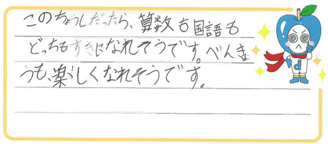 このちょうしだったら、算数も国語も
どっちもすきになれそうです。べんきょ
うも、楽しくなれそうです。